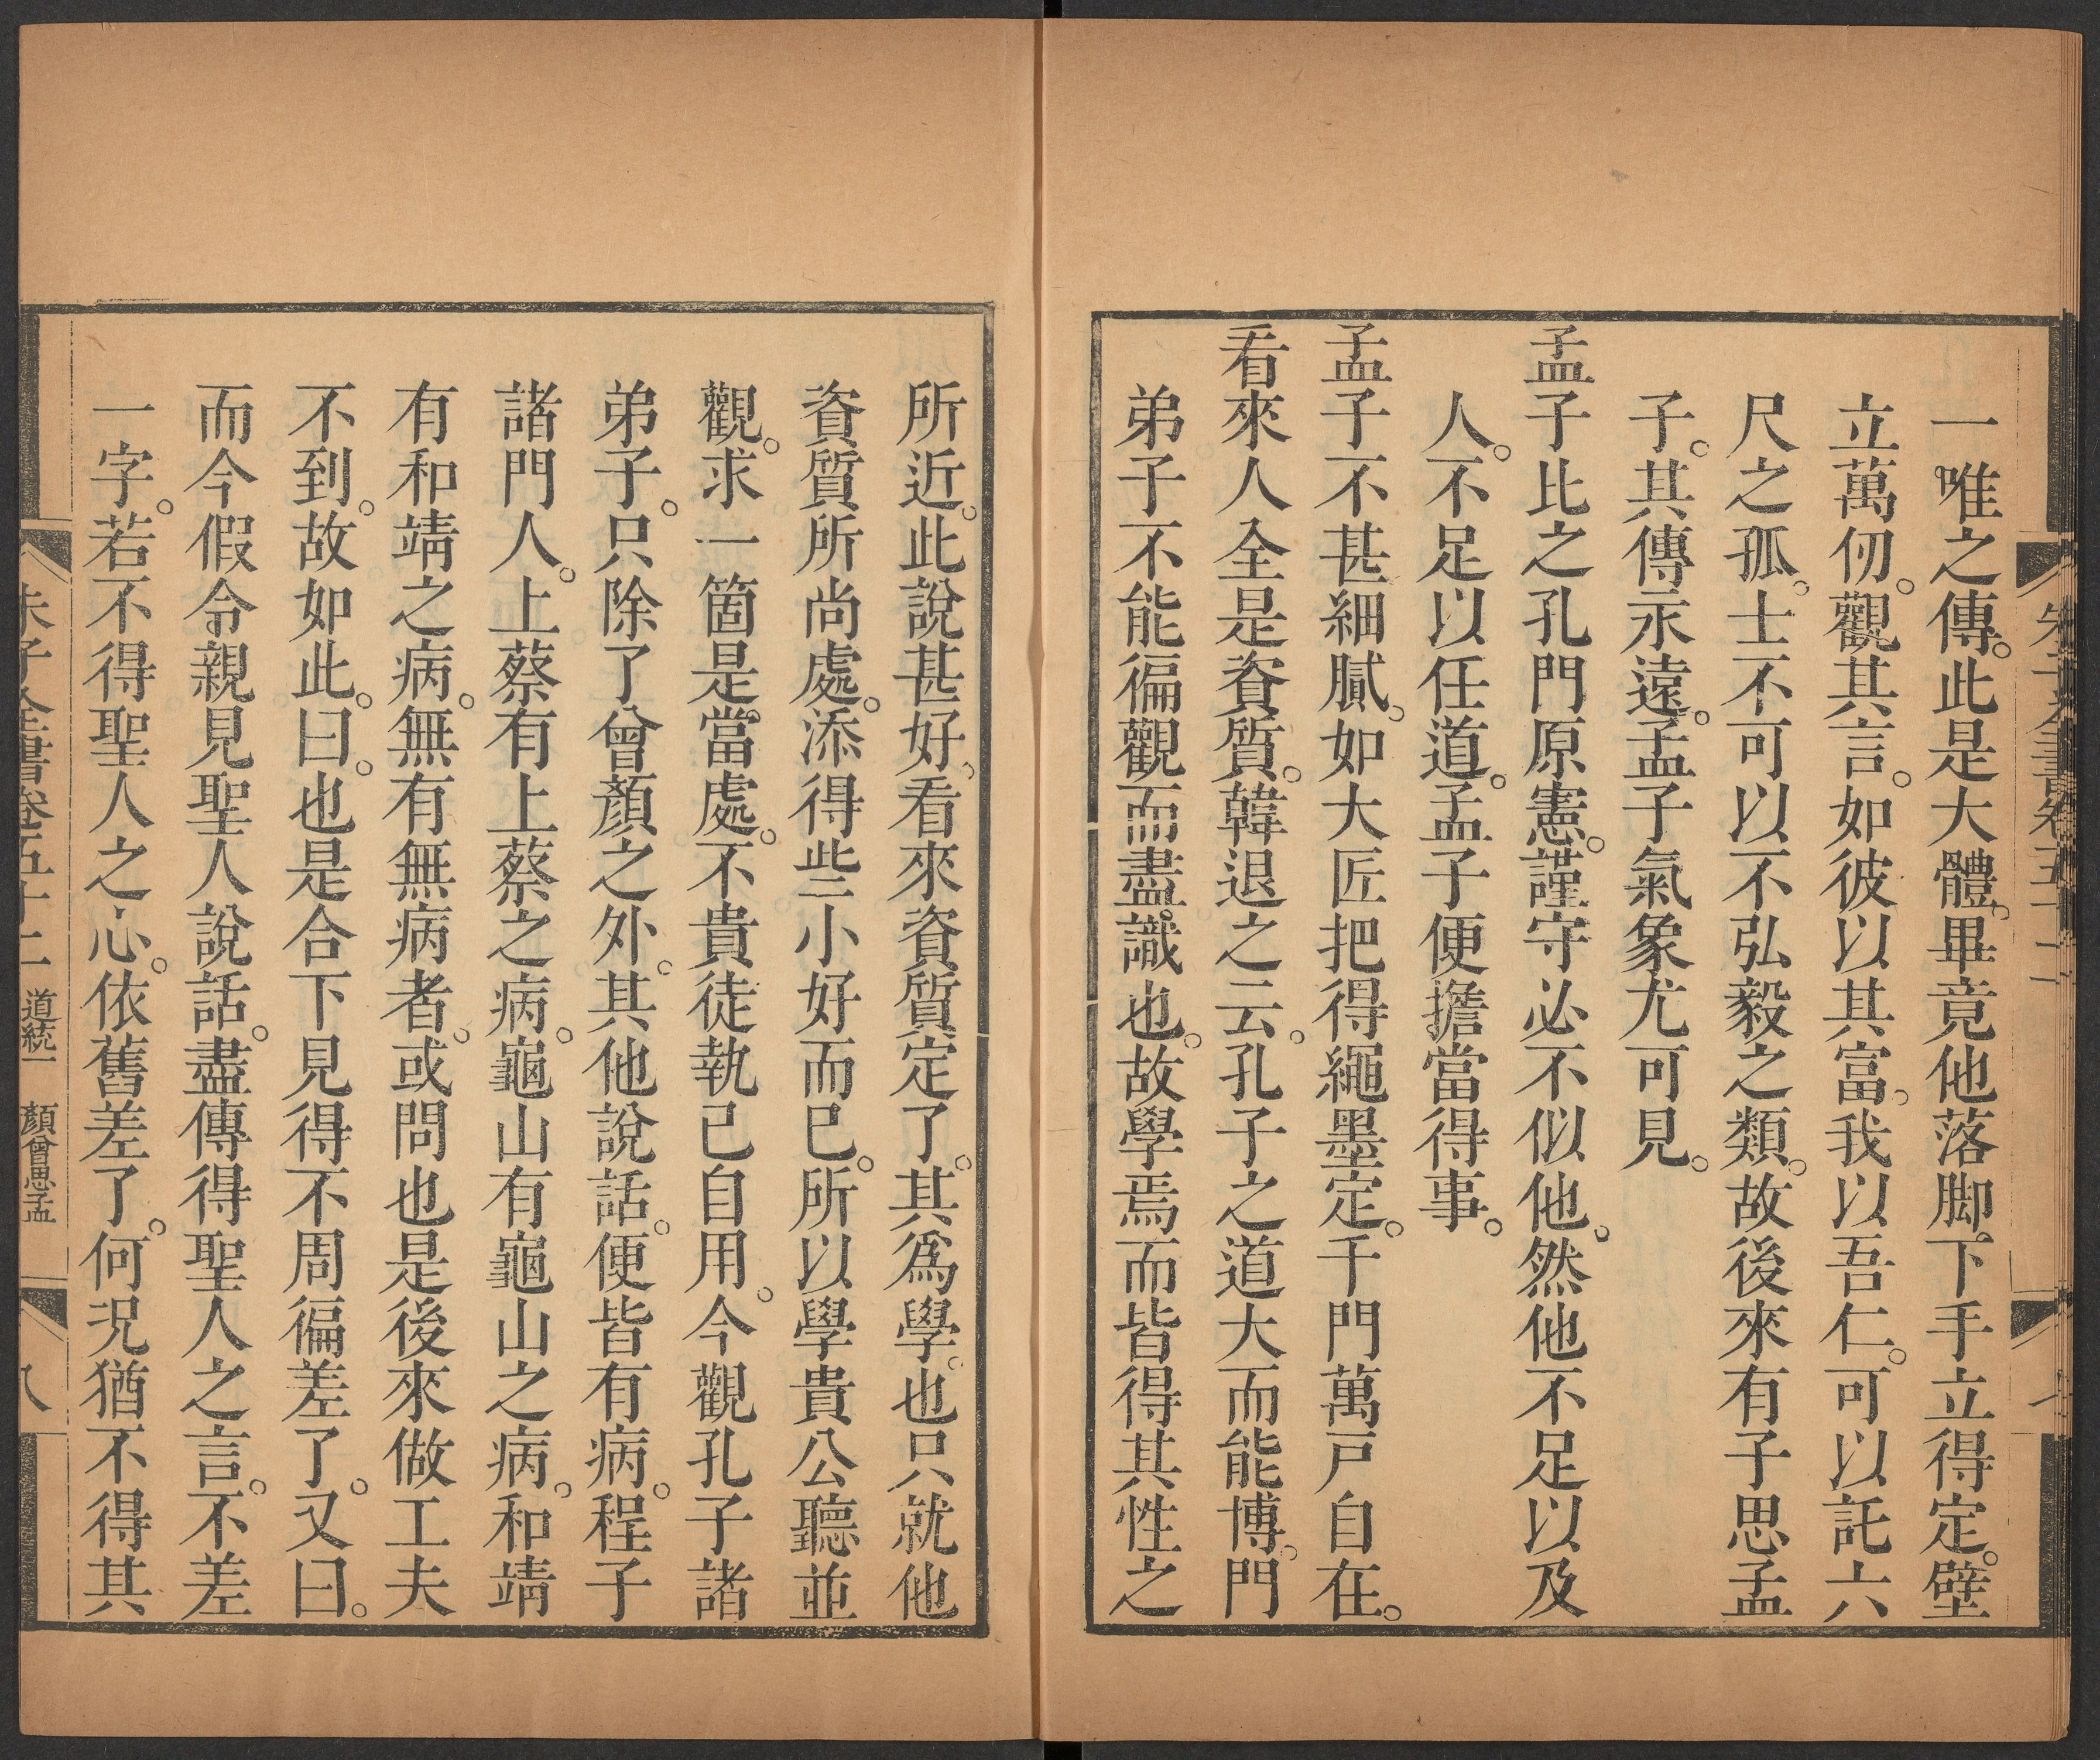 一唯之傳。此是大體。畢竟他落脚。下手立得定。壁
立萬仞。觀其言。如彼以其富。我以吾仁。可以託六
尺之孤。士不可以不弘毅之類。故後來有子思孟
子。其傳永遠。孟子氣象尤可見。
孟子比之孔門原憲。謹守必不似他。然他不足以及
人。不足以任道。孟子便擔當得事。
孟子不甚細膩。如大匠把得繩墨定。千門萬戸自在。
看來人全是資質。韓退之云。孔子之道大而能博。門
弟子不能徧觀而盡識也。故學焉而皆得其性之
所近。此說甚好。看來資質定了。其爲學。也只就他
資質所尚處。添得些小好而已。所以學貴公聽並
觀。求一箇是當處。不貴徒執已自用。今觀孔子諸
弟子。只除了曾顏之外。其他說話。便皆有病。程子
諸門人。上蔡有上蔡之病。龜山有龜山之病。和靖
有和靖之病。無有無病者。或問也是後來做工夫
不到。故如此。曰。也是合下見得不周徧差了。又曰。
而今假令親見聖人說話。盡傳得聖人之言。不差
一字。若不得聖人之心。依舊差了。何況猶不得其
朱子全書卷五十二 道統一 顏曾思孟 八